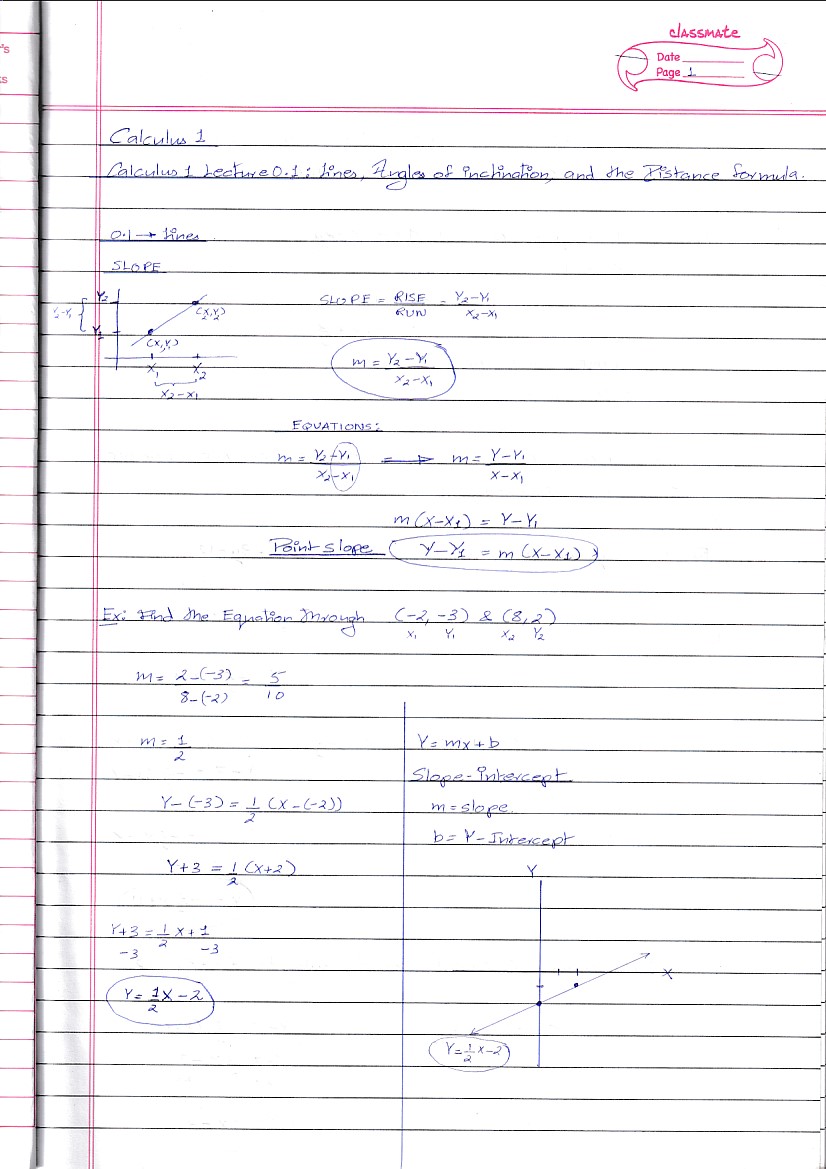 's
s
classmate
Date
Page 1
Calculus 1
Calculus 1 Lecture 0.1: Lines, Angles of inclination, and the Distance formula.
0.1 → Lines
SLOPE
Y2
Y2-Y1 { (X2,Y2) SLOPE = RISE/RUN = Y2-Y1/X2-X1
Y1
(X1,Y1)
X1 X2 m = Y2-Y1/X2-X1
X2-X1
EQUATIONS:
m = Y2-Y1/X2-X1 ⟹ m = Y-Y1/X-X1
m(X-X1) = Y-Y1
Point slope Y-Y1 = m(X-X1)
Ex: Find the Equation through (-2, -3) & (8, 2)
X1 Y1 X2 Y2
m = 2-(-3)/8-(-2) = 5/10
m = 1/2
Y-(-3) = 1/2 (X-(-2))
Y+3 = 1/2 (X+2)
Y+3 = 1/2 X + 1
-3 -3
Y = 1/2 X - 2
Y = mx + b
Slope-intercept
m = slope
b = Y-Intercept
Y
X
Y = 1/2 X - 2